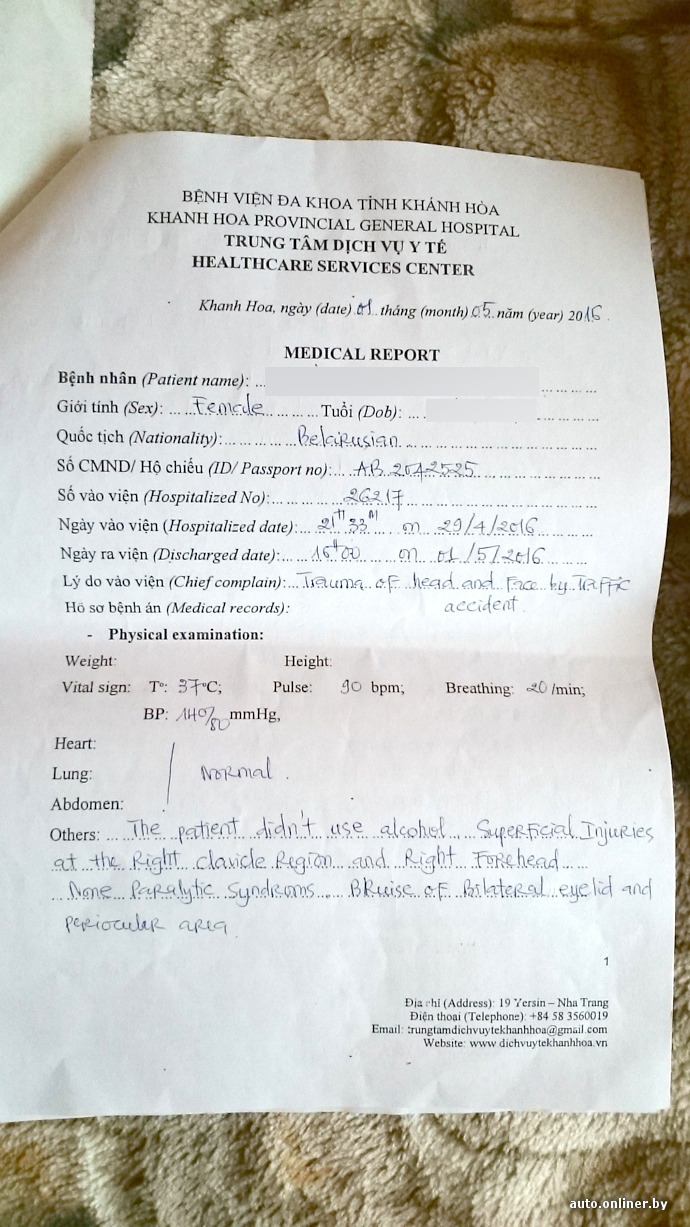 BỆNH VIỆN ĐA KHOA TỈNH KHÁNH HÒA
KHANH HOA PROVINCIAL GENERAL HOSPITAL
TRUNG TÂM DỊCH VỤ Y TẾ
HEALTHCARE SERVICES CENTER
Khanh Hoa, ngày (date) 01 tháng (month) 05 năm (year) 2016.
MEDICAL REPORT
Bệnh nhân (Patient name):
Giới tính (Sex): Female Tuổi (Dob):
Quốc tịch (Nationality): Belairusian
Số CMND/ Hộ chiếu (ID/ Passport no): AB 2042525
Số vào viện (Hospitalized No): 26217
Ngày vào viện (Hospitalized date): 21H 33M on 29/4/2016
Ngày ra viện (Discharged date): 16H00 on 01/5/2016
Lý do vào viện (Chief complain): Trauma of head and Face by Traffic
accident.
Hồ sơ bệnh án (Medical records):
- Physical examination:
Weight: Height:
Vital sign: Tº: 37ºC; Pulse: 90 bpm; Breathing: 20 /min;
BP: 140/80 mmHg,
Heart:
Lung: Normal.
Abdomen:
Others: The patient didn't use alcohol. Superficial Injuries
at the Right clavicle Region and Right Forehead
None Paralytic Syndroms. Bruise of Bilateral eyelid and
periocular area.
1
Địa chỉ (Address): 19 Yersin – Nha Trang
Điện thoại (Telephone): +84 58 3560019
Email: trungtamdichvuytekhanhhoa@gmail.com
Website: www.dichvuytekhanhhoa.vn
auto.onliner.by